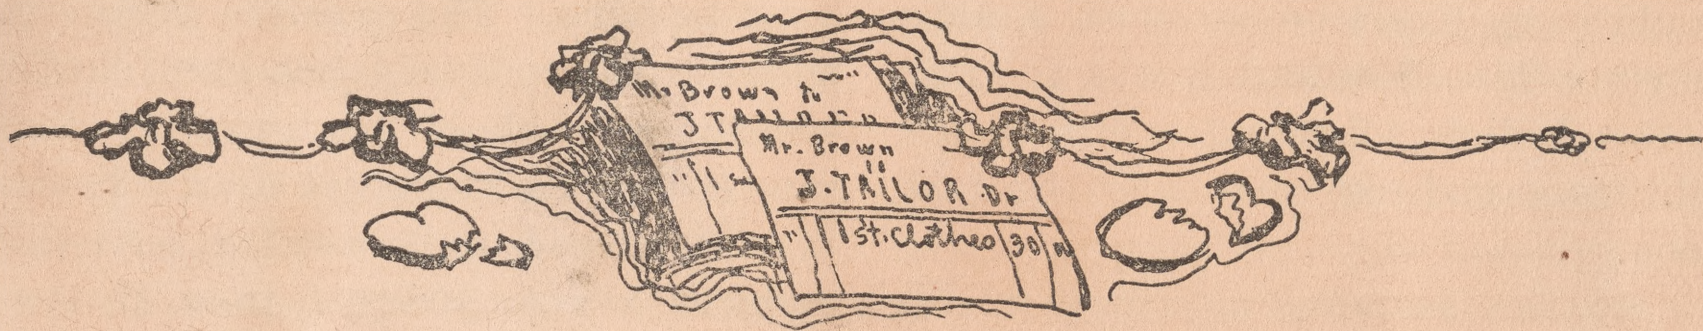 Mr Brown to
J TAILOR
" 1 su
Mr. Brown
"
J. TAILOR Dr
" 1 st. Clothes 30